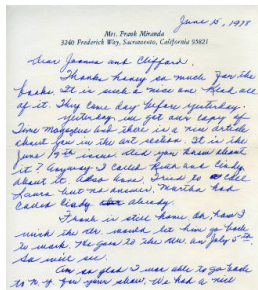 June 15, 1978
Mrs. Frank Miranda
3240 Frederick Way, Sacramento, California 95821
Dear Joanna and Clifford,
Thanks honey so much for the
books. It is such a nice one
of it. They came day before yesterday.
Yesterday we got our copy of
Time Magazine and there is a nice article
about you in the art section. It is the
June 19th issue. Did you know about
it? Anyway I called and Cindy
about it. Also Anna. Tried to call
Laura but no answer. Martha had
called Cindy already.
Frank is still home
wish the dr. would let him go back
to work. He goes to the dr. on July 5th.
So will see.
Am so glad I was able to go back
to N.Y. for your show. We had a nice